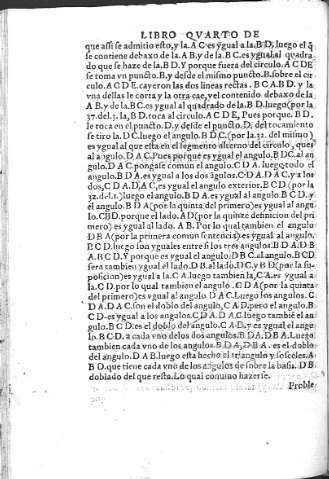 LIBRO QVARTO DE
que assi se admitio esto, y la .A C. es ygual a la .B D. luego el q̃
se contiene debaxo de la .A B. y de la .B C. es ygual al quadra
do que se haze de la .B D. Y porque fuera del circulo .A C D E
se toma vn puncto .B. y desde el mismo puncto .B. sobre el cir
culo .A C D E. cayeron las dos lineas rectas .B C A. B D. y la
vna dellas le corta y la otra cae, y el contenido debaxo de la
A B. y de la .B C. es ygual al quadrado de la .B D. luego (por la
37. del .3. la, B D. toca al circulo .A C D E, Pues porque .B D.
le toca en el puncto .D, y desde el puncto .D. del tocamiento
se tiro la .D C. luego el angulo .B D C. (por la 32. del mismo)
es ygual al que esta en el segmento alterno del circulo, que es
al angulo .D A C. Pues porque es ygual el angulo .B D C. al an
gulo .D A C. pongase comun el angulo .C D A. luego todo el
angulo .B D A. es ygual a los dos angulos .C D A. D A C. y a los
dos, C D A. D A C, es ygual el angulo exterior .B C D (por la
32. del .1.) luego el angulo .B D A. es ygual al angulo .B C D. y
el angulo .B D A (por la quinta del primero) es ygual al angu
lo .C B D. porque el lado .A D (por la quinze definicion del pri
mero) es ygual al lado .A B. Por lo qual tambien el angulo
D B A (por la primera comun sentencia) es ygual al angulo.
B C D. luego son yguales entre si los tres angulos .B D A. D B
A. B C D. Y porque es ygual el angulo .D B C. al angulo .B C D
sera tambien ygual el lado .D B. al lado .D C. y B D (por la su-
posicion) es ygual a la .C A. luego tambien la, C A. es ygual a
la .C D. por lo qual tambien el angulo .C D A (por la quinta
del primero) es ygual al angulo .D A C. Luego los angulos .C
D A. D A C. son el doblo del angulo .C A D. pero el angulo .B
C D. es ygual a los angulos .C D A. D A C. luego tambiẽ el an
gulo .B C D. es el doblo del angulo .C A D. y es ygual el angu-
lo .B C D. a cada vno de los dos angulos .B D A. D B A. Luego
tambien cada vno de los angulos .B D A, D B A. es el doblo
del angulo .D A B. luego esta hecho el triangulo ysosceles .A
B D. que tiene cada vno de los angulos de sobre la basis. D B
doblado del que resta. Lo qual conuino hazerse.
Proble